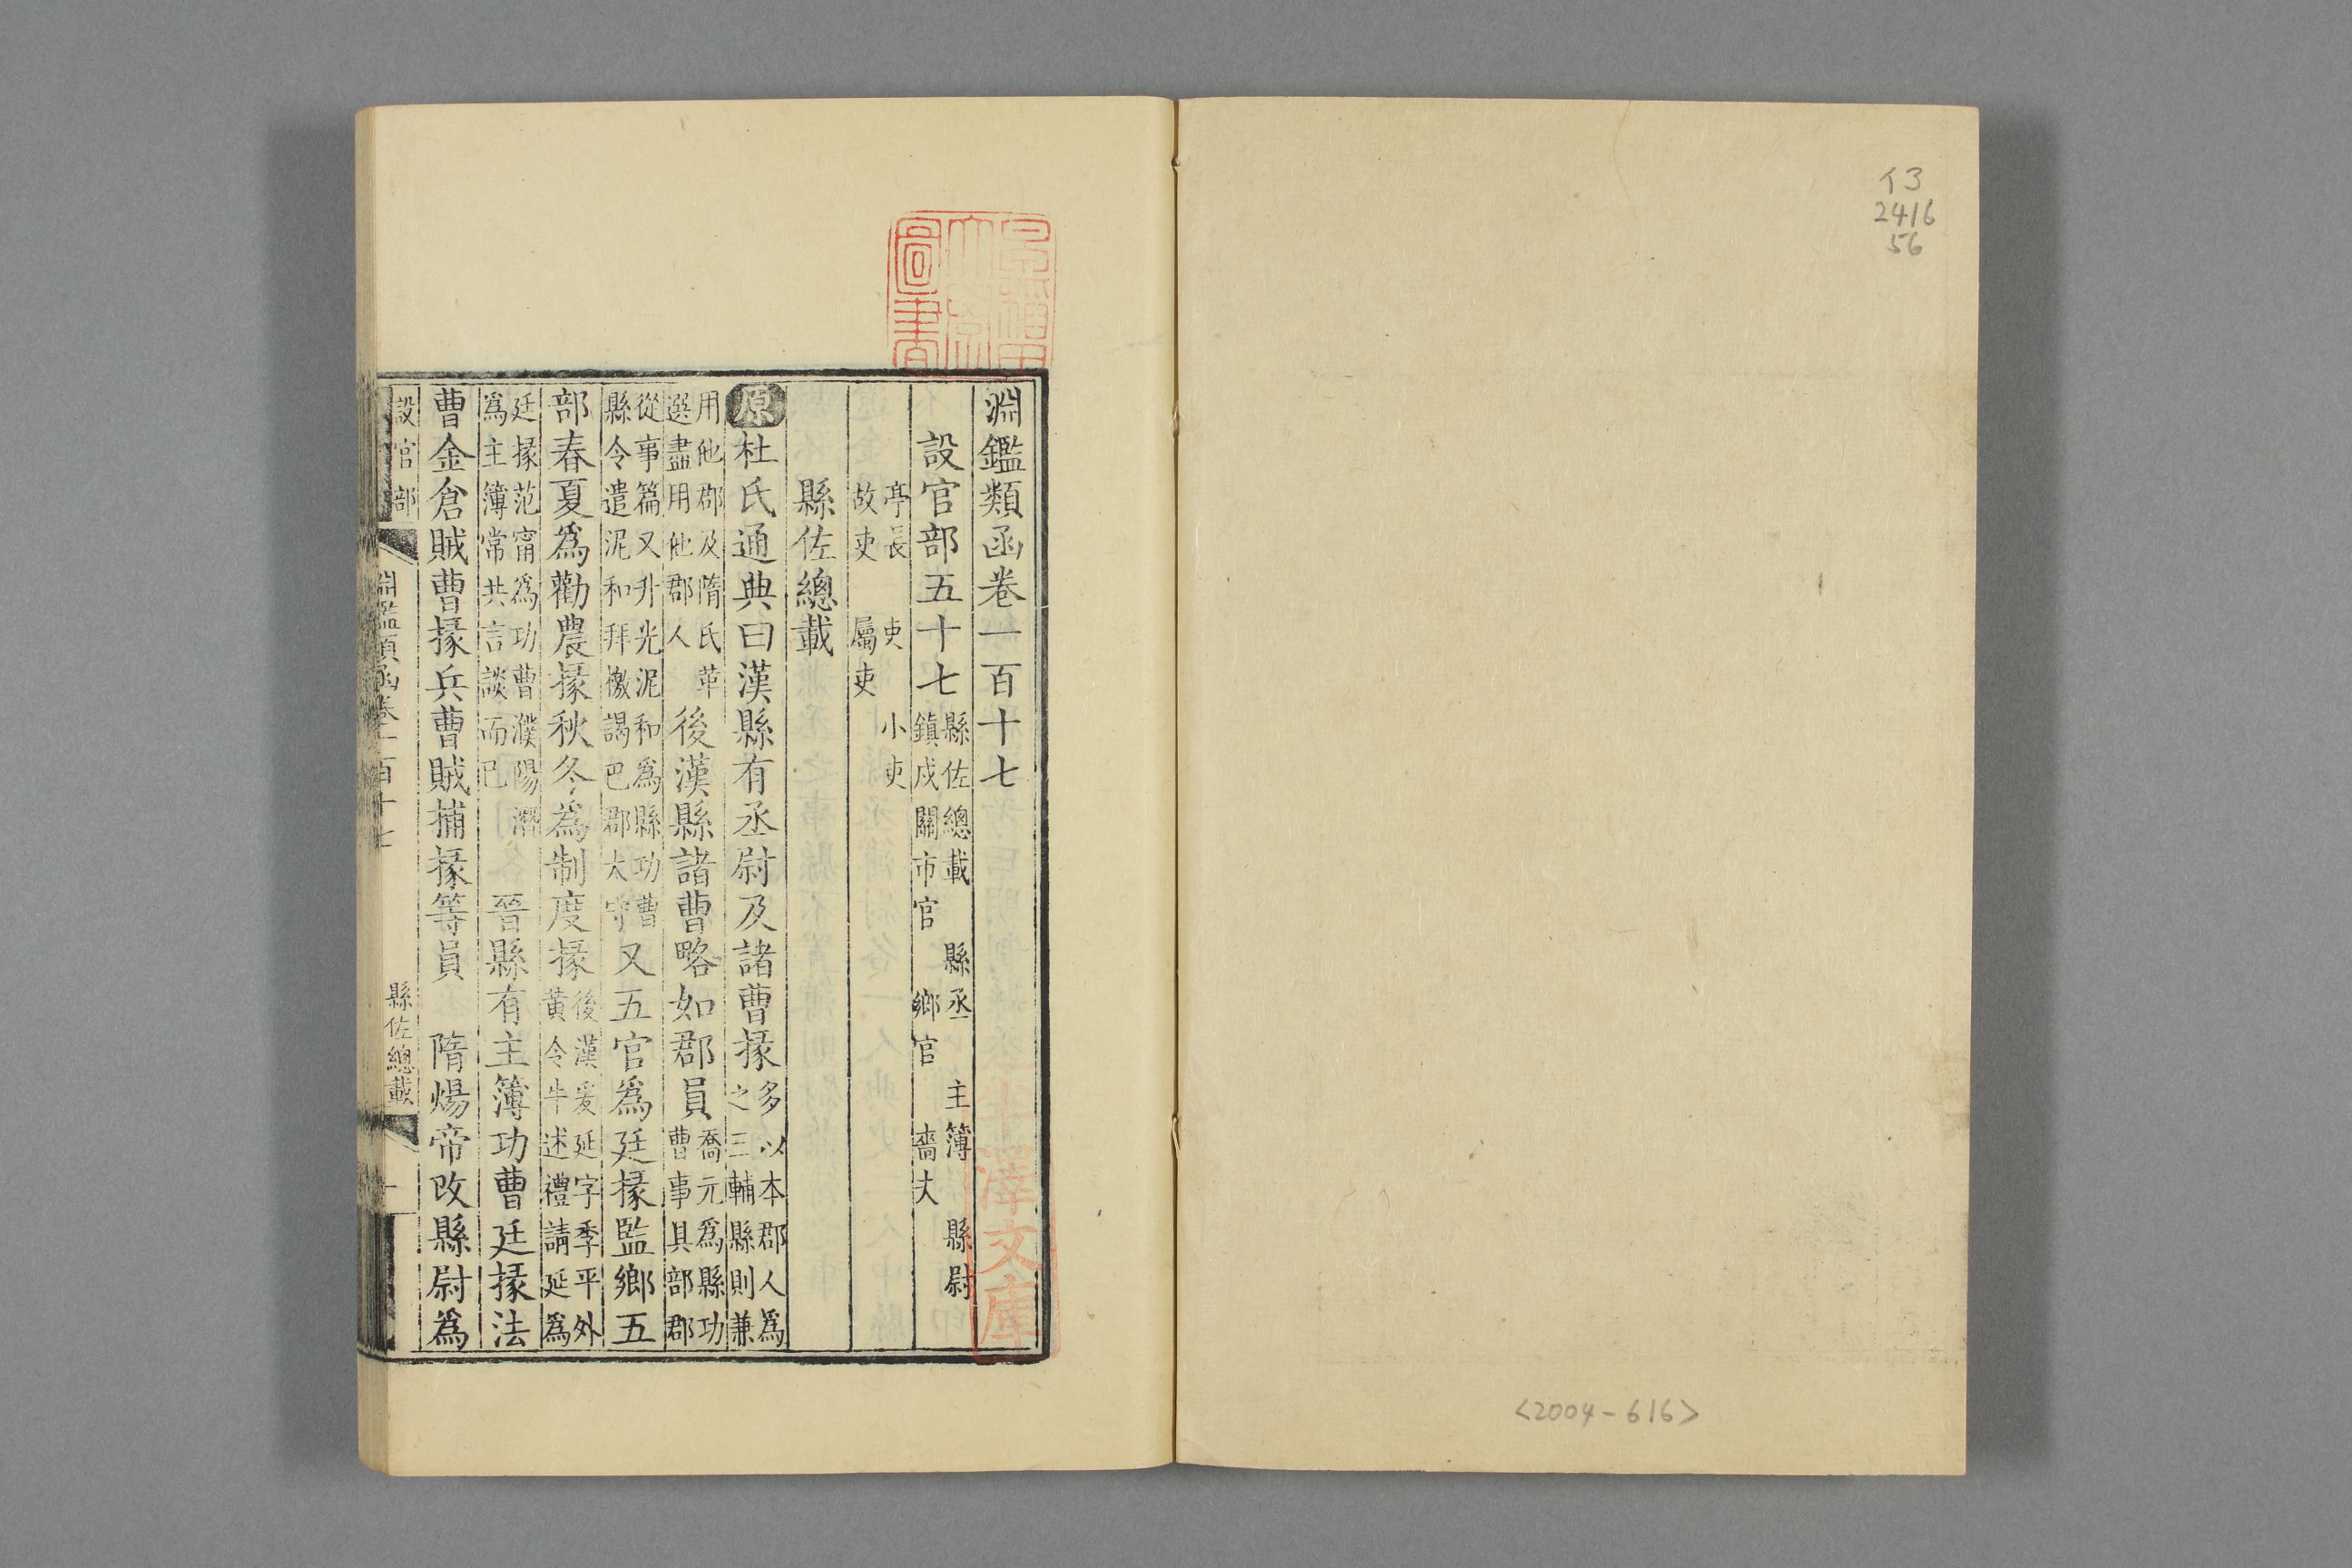 イ3
2416
56
<2004-616>
淵鑑類函卷一百十七
設官部五十七 縣佐總載 縣丞 主簿 縣尉
鎮戍關市官 鄉官 嗇夫
亭長 吏 小吏
故吏 屬吏
縣佐總載
原 杜氏通典曰漢縣有丞尉及諸曹掾 多以本郡人爲
之三輔縣則兼
用他郡及隋氏革
選盡用他郡人
後漢縣諸曹略如郡員 喬元爲縣功
曹事具部郡
從事篇又升光泥和爲縣功曹
縣令遣泥和拜檄謁巴郡太守
又五官爲廷掾監鄉五
部春夏爲勸農掾秋冬爲制度掾 後漢爰延字季平外
黃令牛述禮請延爲
廷掾范甯爲功曹濮陽潛
爲主簿常共言談而已
晉縣有主簿功曹廷掾法
曹金倉賊曹掾兵曹賊捕掾等員 隋煬帝改縣尉爲
設官部
淵鑑類函卷一百十七
縣佐總載
一
圖書
澤文庫